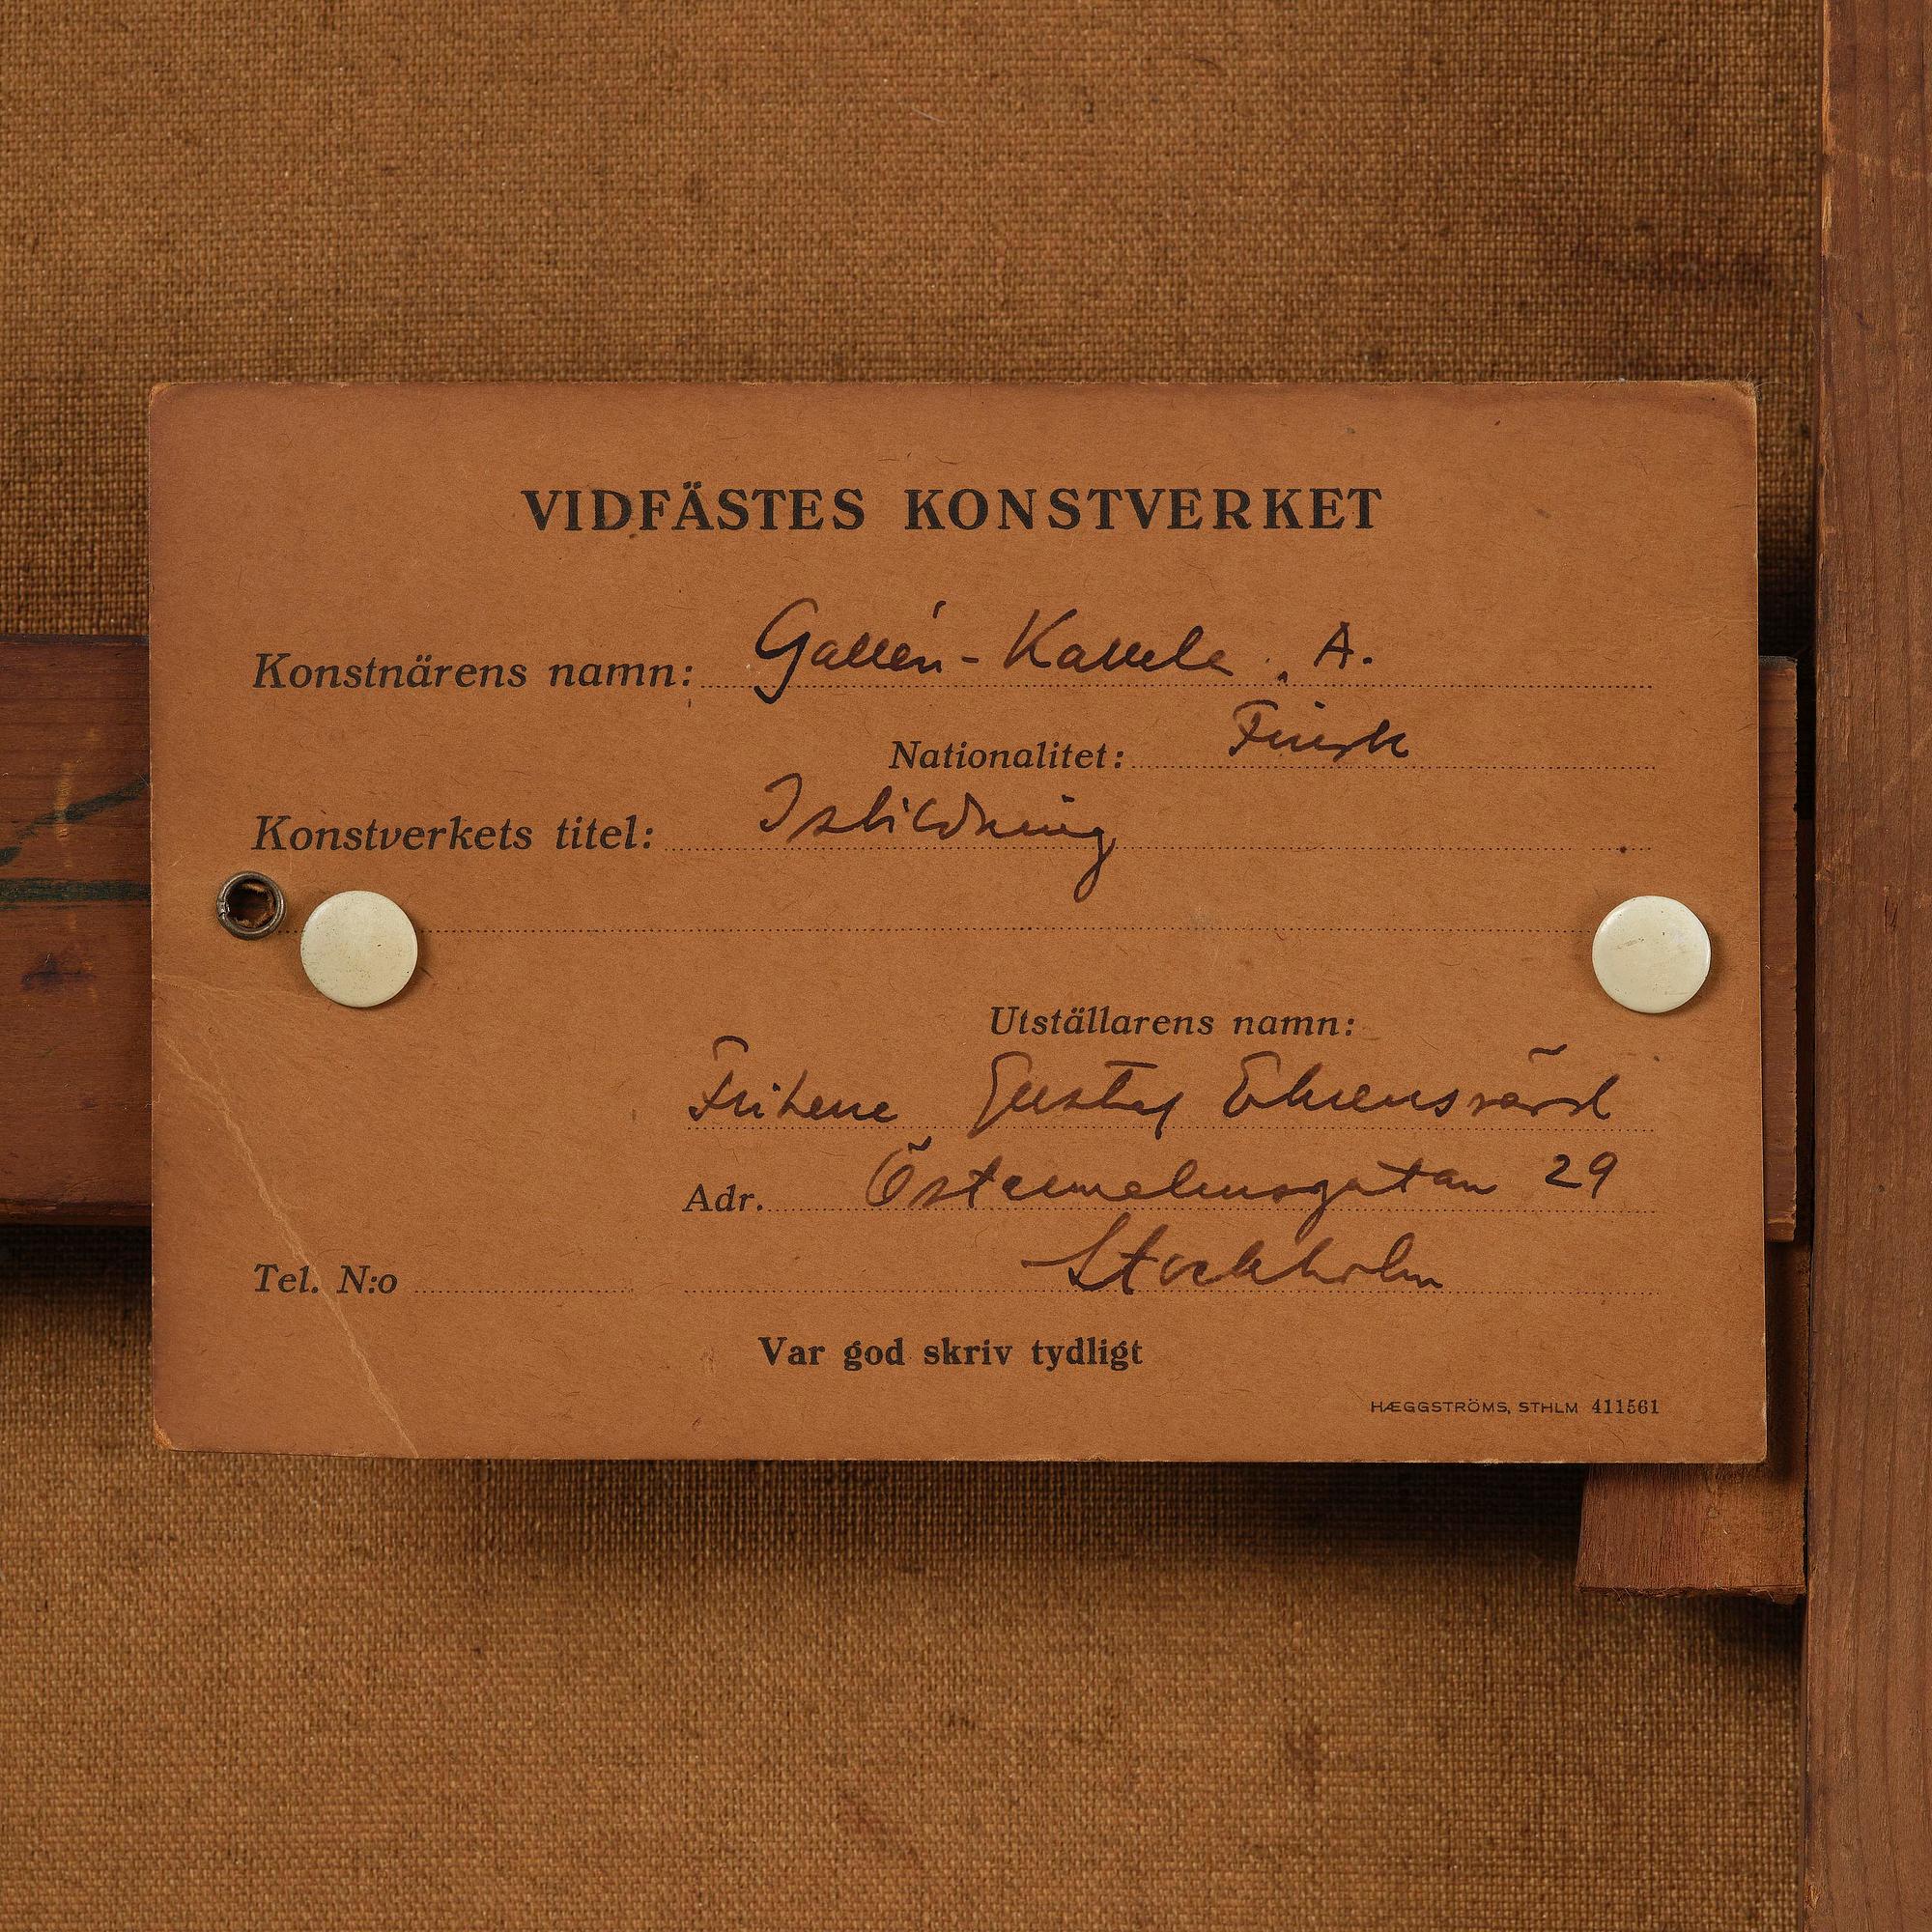 VIDFÄSTES KONSTVERKET
Konstnärens namn: Gallén-Kallela, A.
Nationalitet: Finsk
Konstverkets titel: Isbildning
Utställarens namn:
Friherre Gustaf Ehrensvärd
Adr. Östermalmsgatan 29
Tel. N:o Stockholm
Var god skriv tydligt
HÆGGSTRÖMS, STHLM 411561